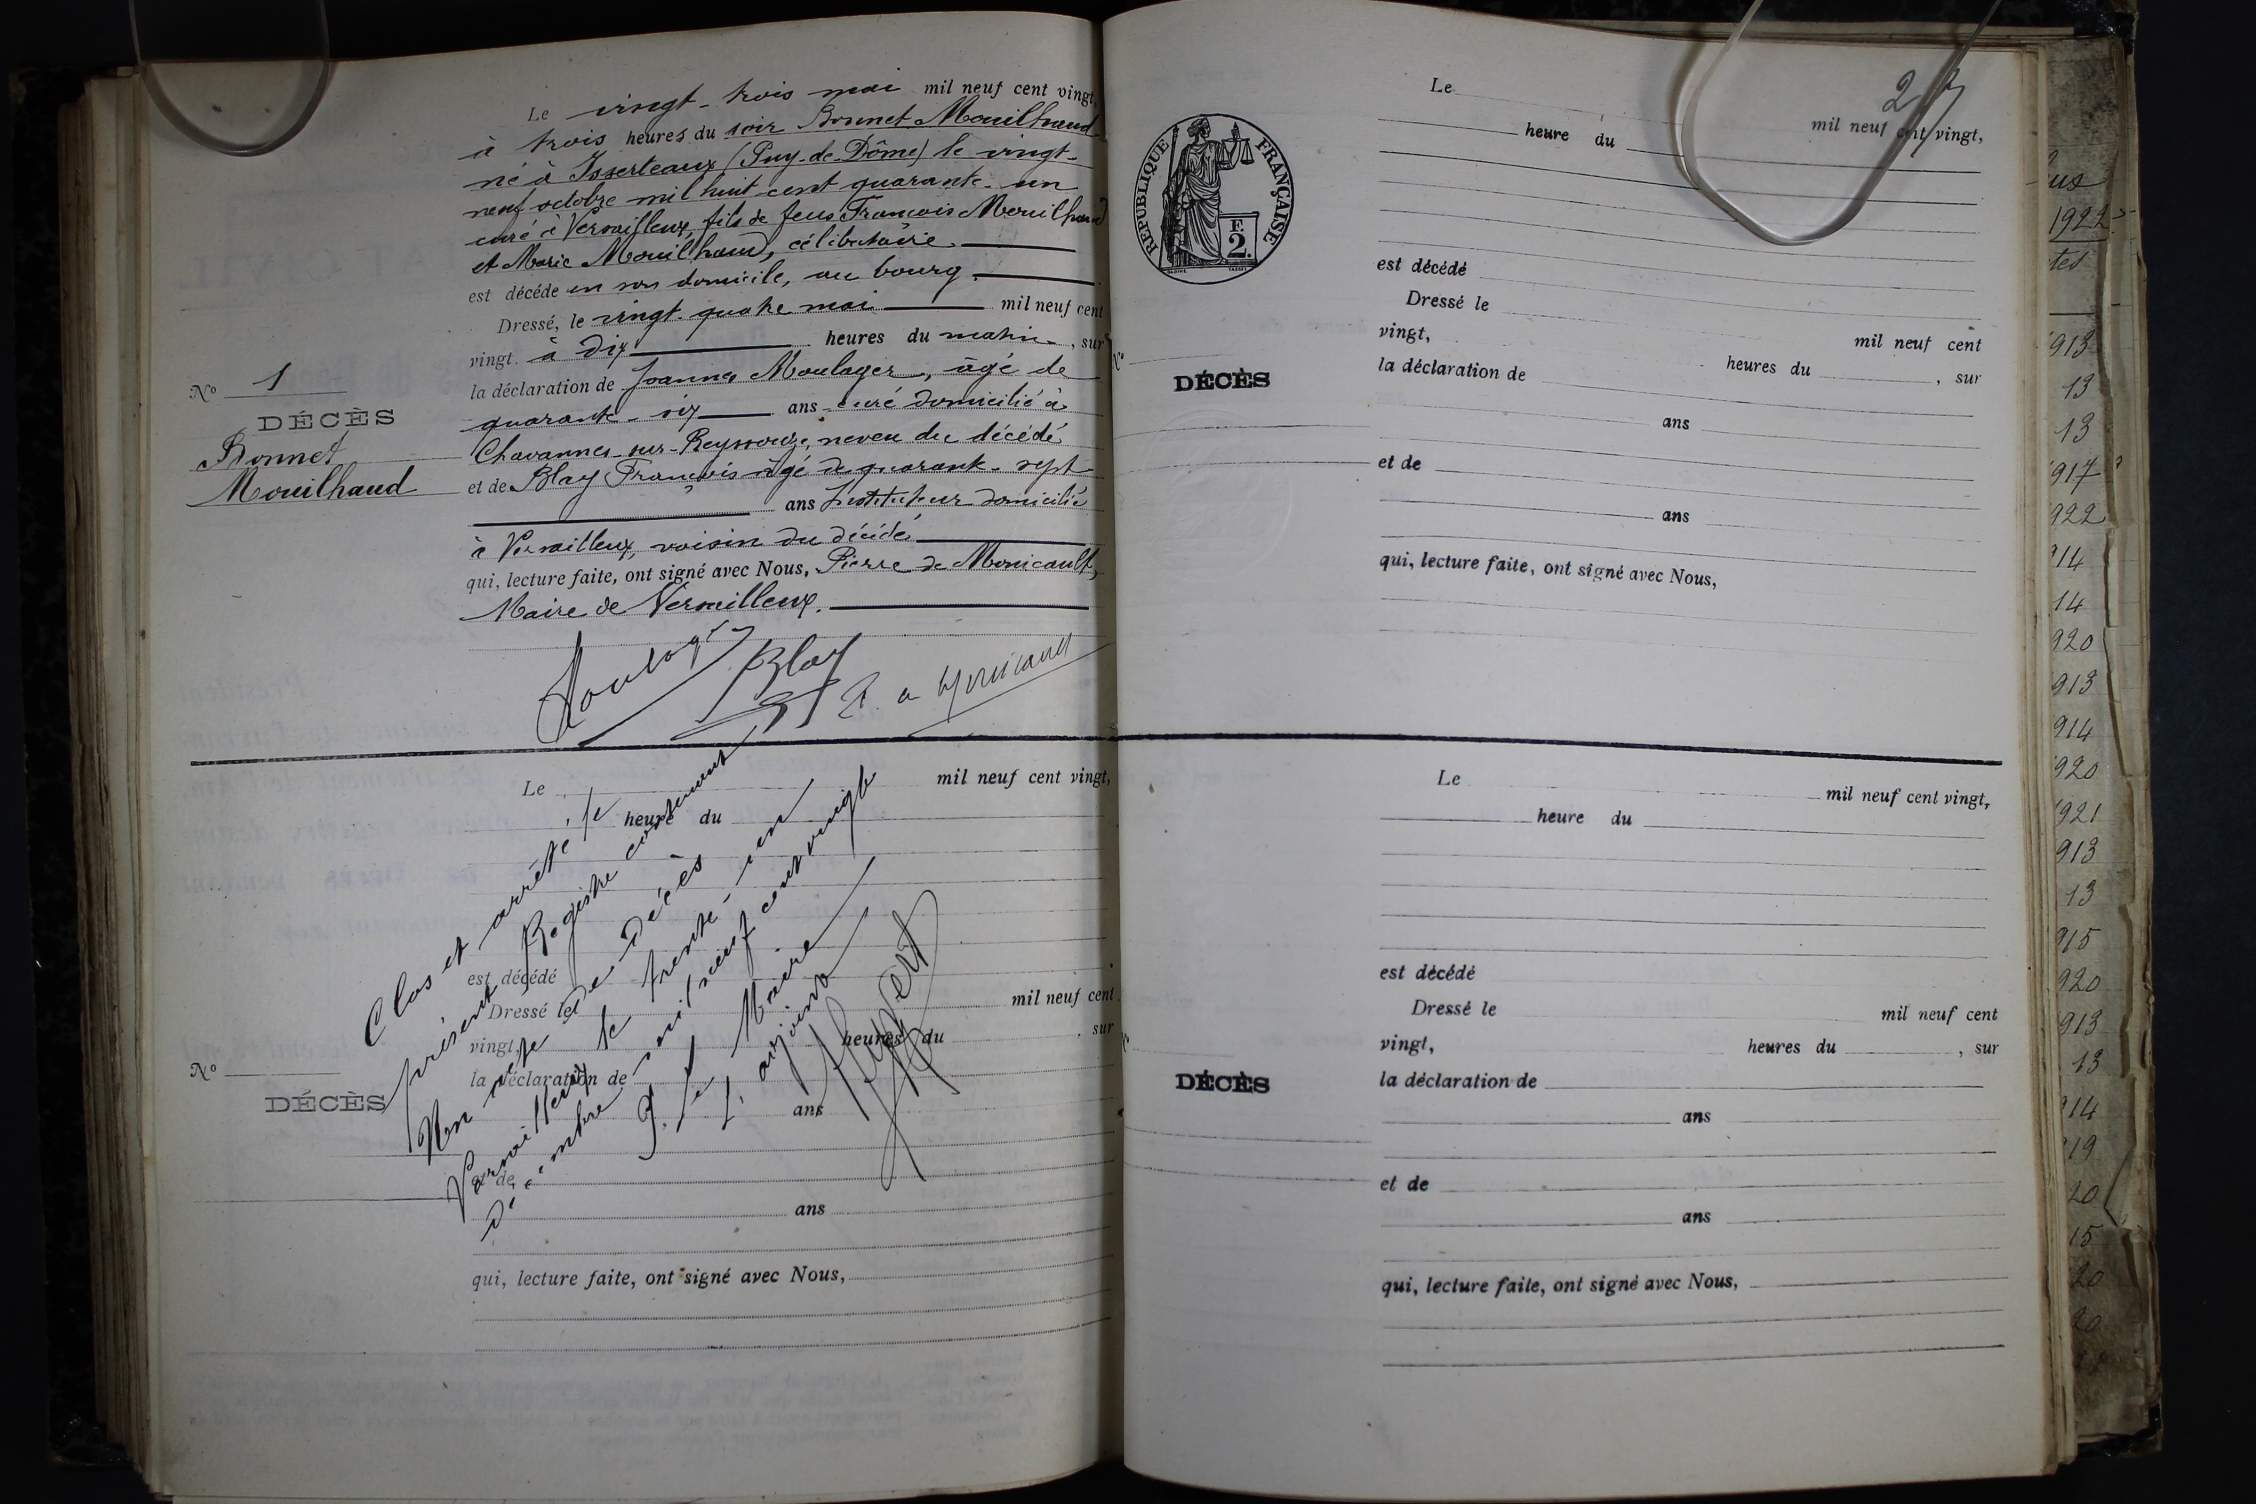 N° 1
DÉCÈS
Bonnet
Mouilhaud
Le vingt-trois mai mil neuf cent vingt,
à trois heures du soir Bonnet Mouilhaud
né à Isserteaux (Puy-de-Dôme) le vingt-
neuf octobre mil huit cent quarante-un
curé à Versailleux, fils de feus François Mouilhaud
et Marie Mouilhaud, célibataire.
est décédé en son domicile, au bourg.
Dressé, le vingt-quatre mai mil neuf cent
vingt, à dix heures du matin, sur
la déclaration de Joannes Moulager, âgé de
quarante-six ans curé domicilié à
Chavannes-sur-Reyssouze, neveu du décédé
et de Blay François âgé de quarante-sept
ans Instituteur domicilié
à Versailleux, voisin du décédé
qui, lecture faite, ont signé avec Nous, Pierre de Monicault,
Maire de Versailleux.
Blay
N°
DÉCÈS
Le mil neuf cent vingt,
heure du
est décédé
Dressé le mil neuf cent
vingt, heures du , sur
la déclaration de
ans
et de
ans
qui, lecture faite, ont signé avec Nous,
Clos et arrêté le
présent Registre contenant
Un acte de Décès
Versailleux le trente-un
Décembre mil neuf cent vingt
P. le Maire
L'adjoint
27
RÉPUBLIQUE FRANÇAISE
F.
2.
Le mil neuf cent vingt,
heure du
est décédé
Dressé le
vingt, mil neuf cent
N°
DÉCÈS
la déclaration de heures du , sur
ans
et de
ans
qui, lecture faite, ont signé avec Nous,
Le mil neuf cent vingt,
heure du
est décédé
Dressé le mil neuf cent
vingt, heures du , sur
DÉCÈS
la déclaration de
ans
et de
ans
qui, lecture faite, ont signé avec Nous,
1922
913
13
13
917
922
914
14
920
913
914
920
921
913
13
915
920
913
13
914
19
20
15
20
20